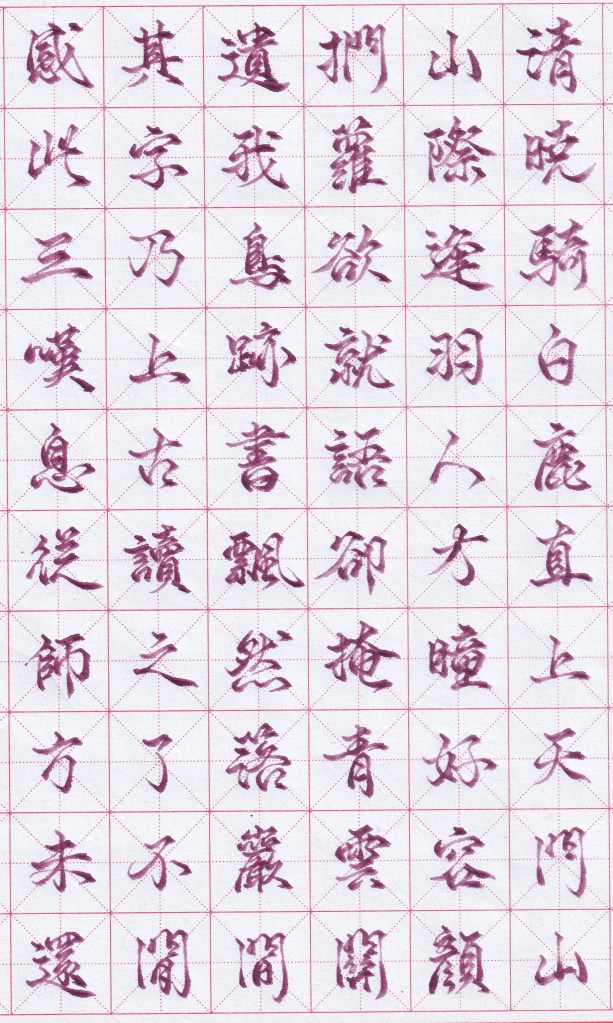 清暁騎白鹿直上天門山
山際逢羽人方瞳好容顔
捫蘿欲就語卻掩青雲關
遺我鳥跡書飄然落巖間
其字乃上古讀之了不閒
感此三嘆息從師方未還